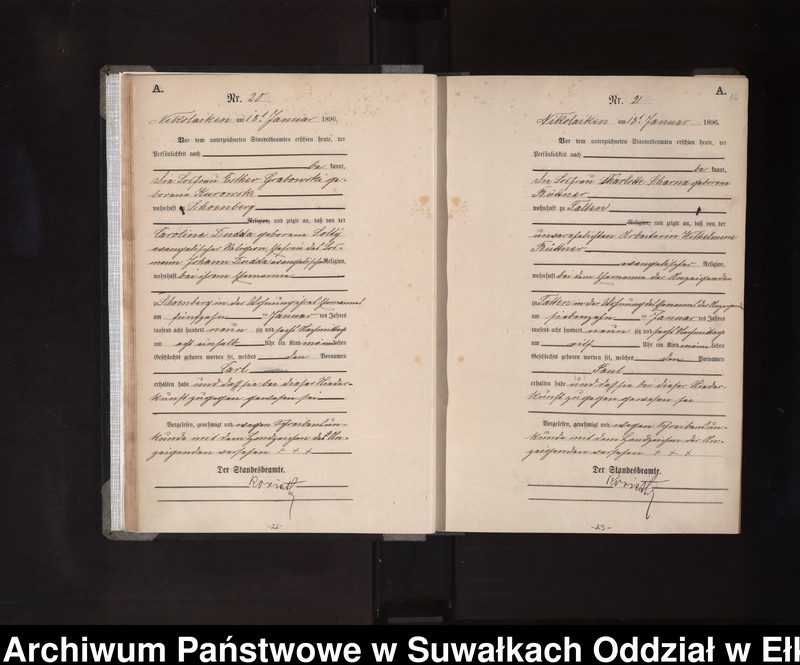 A.
Nr. 20
Nikolaiken am 18t Januar 1896.
Vor dem unterzeichneten Standesbeamten erschien heute, der
Persönlichkeit nach
be kannt,
die Losfrau Esther Grabowski ge-
borene Kurowski
wohnhaft zu Schoenberg
Religion, und zeigte an, daß von der
Caroline Dudda geborene Soltÿ
evangelischer Religion, Ehefrau des Los-
mann Johann Dudda evangelischer Religion,
wohnhaft bei ihrem Ehemanne
zu Schoenberg in der Wohnung ihres Ehemannes
am fünfzehn ten Januar des Jahres
tausend acht hundert neun zig und sechs Nachmittags
um acht einhalb Uhr ein Kind männlichen
Geschlechts geboren worden sei, welches den Vornamen
Carl
erhalten habe und daß sie bei dieser Nieder-
kunft zugegen gewesen sei
Vorgelesen, genehmigt und wegen Schreibensun-
kunde mit dem Handzeichen der An-
zeigenden versehen + + +
Der Standesbeamte.
-22-
A.
Nr. 21
Nikolaiken am 18t Januar 1896.
Vor dem unterzeichneten Standesbeamten erschien heute, der
Persönlichkeit nach
be kannt,
die Losfrau Charlotte geborene
wohnhaft zu Talten
Religion, und zeigte an, daß von der
unverehelichten Arbeiterin Wilhelmine
evangelischer Religion,
wohnhaft bei dem Ehemanne der Anzeigenden
zu Talten in der Wohnung des Ehemannes der Anzeigenden
am siebenzehn ten Januar des Jahres
tausend acht hundert neun zig und sechs Nachmittags
um Uhr ein Kind männlichen
Geschlechts geboren worden sei, welches den Vornamen
Paul
erhalten habe und daß sie bei dieser Nieder-
kunft zugegen gewesen sei
Vorgelesen, genehmigt und wegen Schreibensun-
kunde mit dem Handzeichen der An-
zeigenden versehen + + +
Der Standesbeamte.
-23-
Archiwum Państwowe w Suwałkach Oddział w Ełk